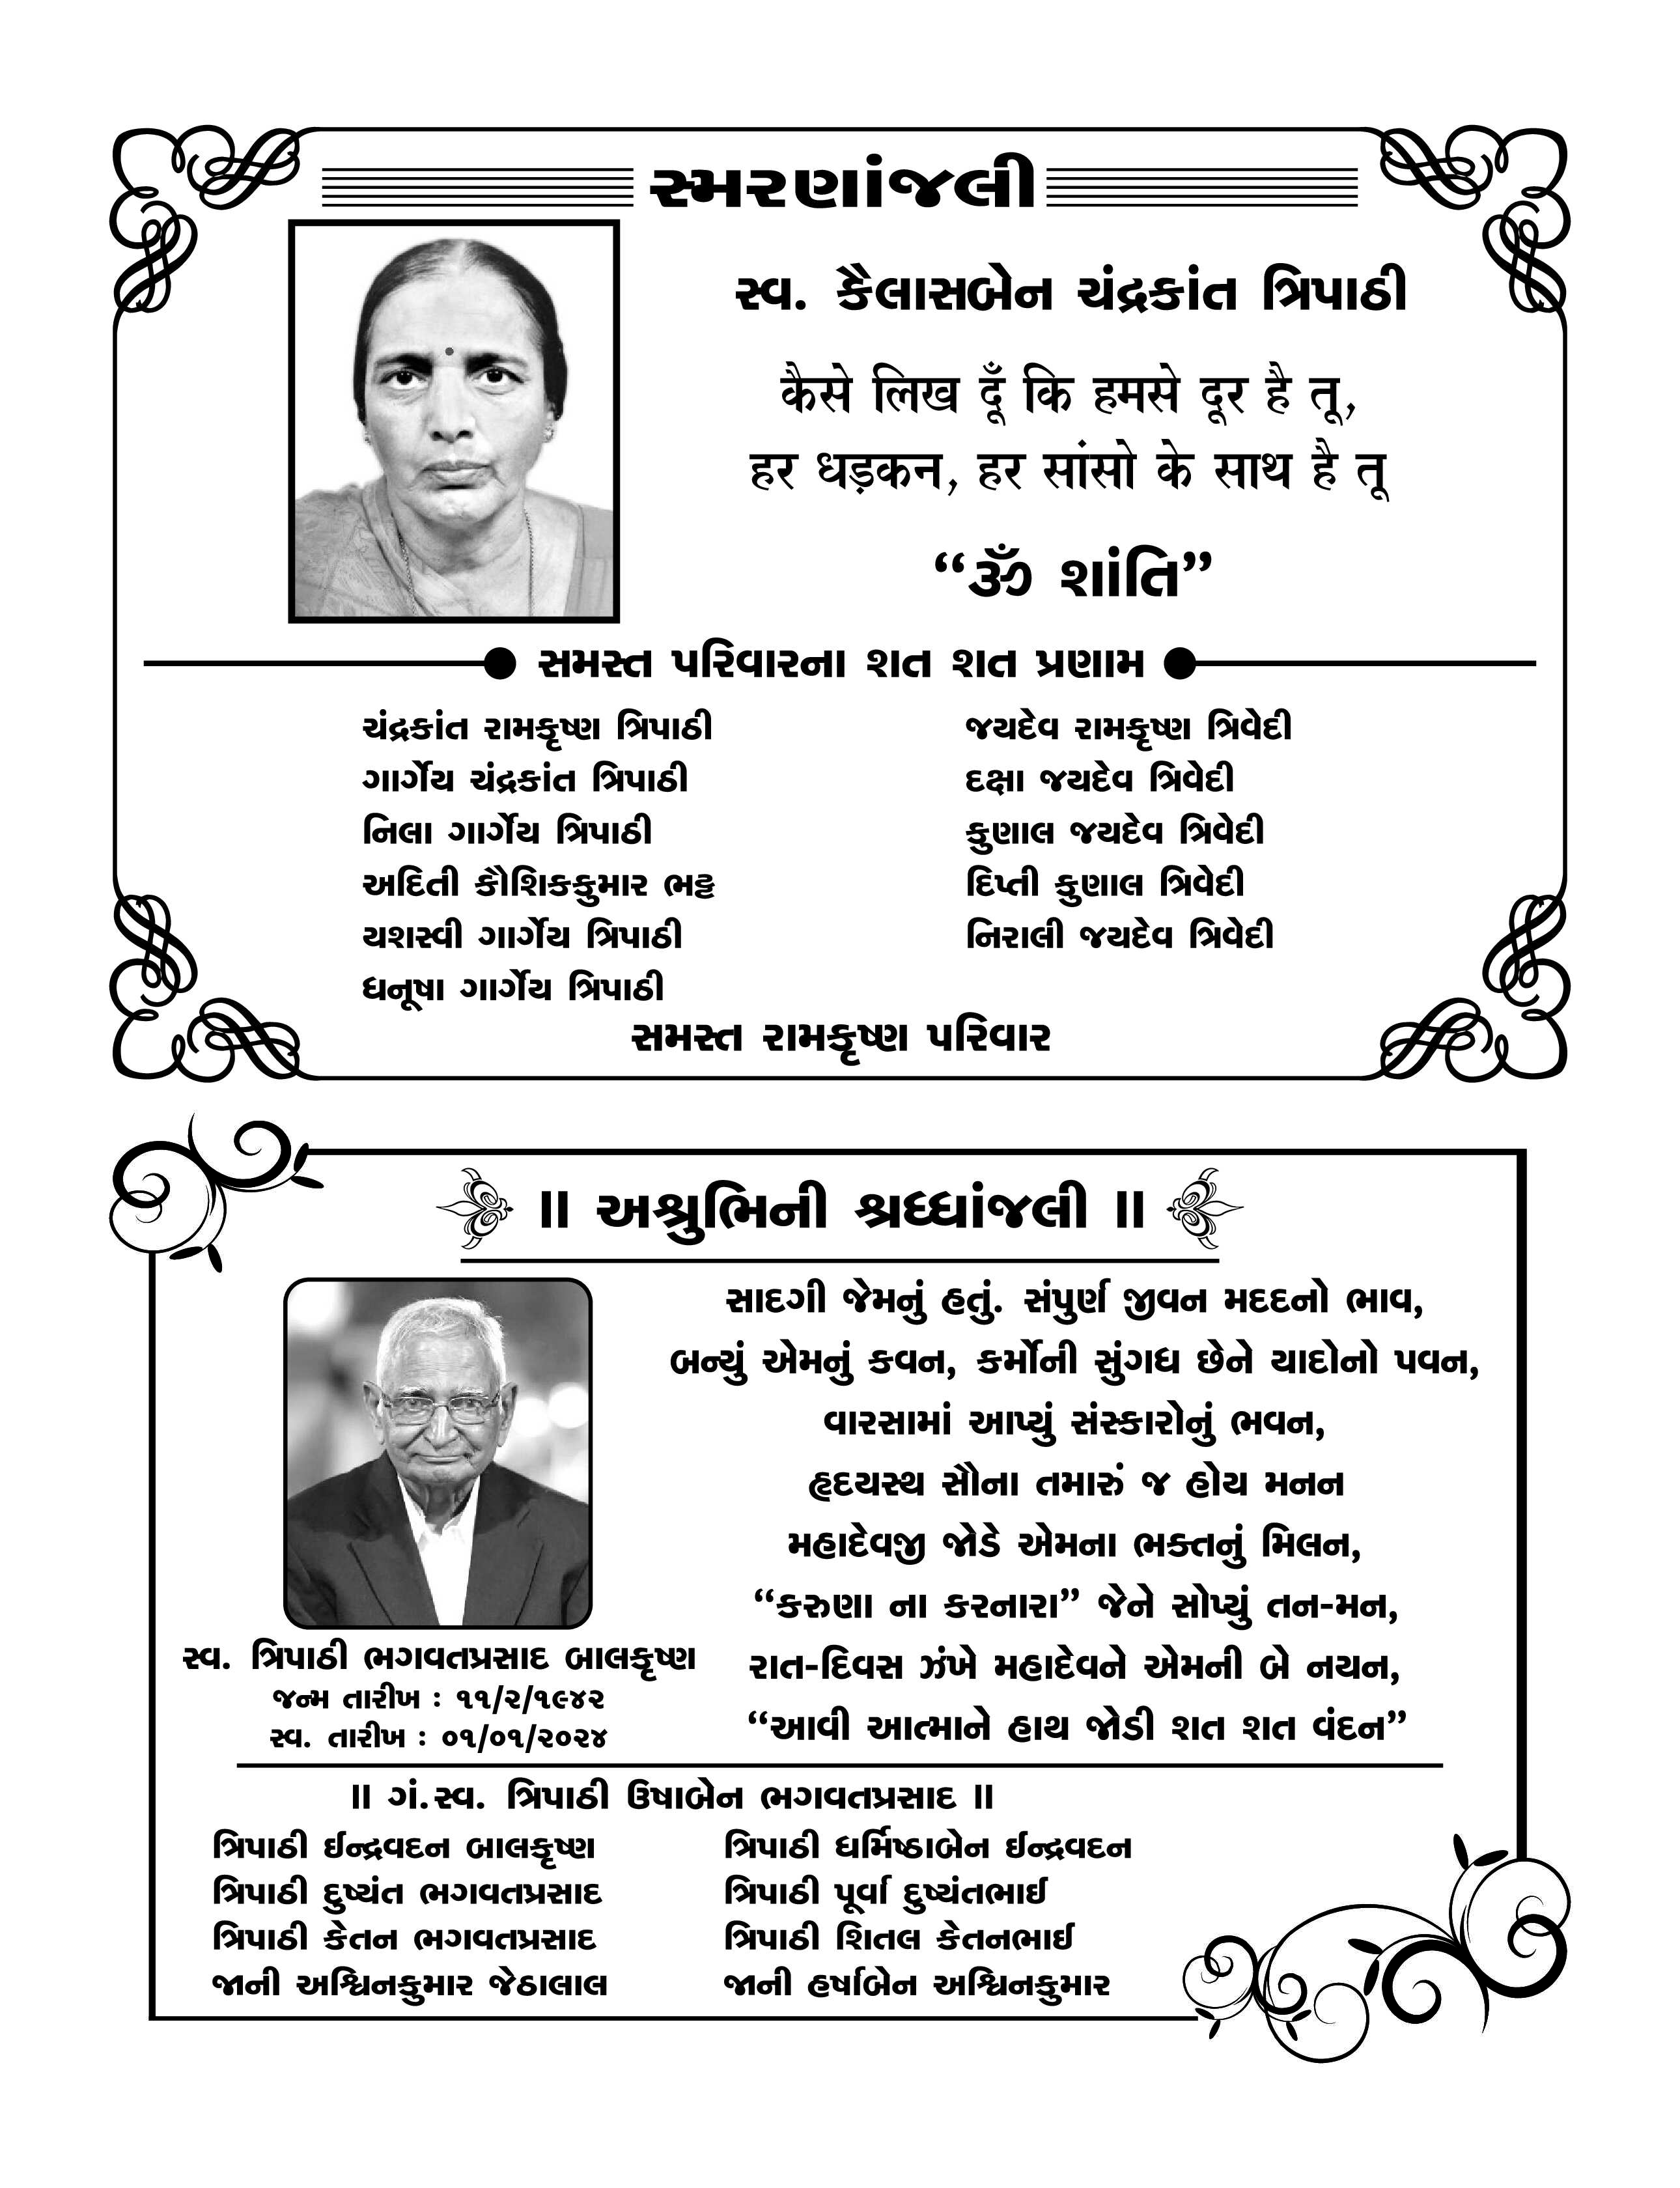 સ્મરણાંજલી
સ્વ. કૈલાસબેન ચંદ્રકાંત ત્રિપાઠી
कैसे लिख दूँ कि हमसे दूर है तू,
हर धड़कन, हर सांसो के साथ है तू
“ૐ શાંતિ”
સમસ્ત પરિવારના શત શત પ્રણામ
ચંદ્રકાંત રામકૃષ્ણ ત્રિપાઠી
ગાર્ગેય ચંદ્રકાંત ત્રિપાઠી
નિલા ગાર્ગેય ત્રિપાઠી
અદિતી કૌશિકકુમાર ભટ્ટ
યશસ્વી ગાર્ગેય ત્રિપાઠી
ધનૂષા ગાર્ગેય ત્રિપાઠી
જયદેવ રામકૃષ્ણ ત્રિવેદી
દક્ષા જયદેવ ત્રિવેદી
કુણાલ જયદેવ ત્રિવેદી
દિપ્તી કુણાલ ત્રિવેદી
નિરાલી જયદેવ ત્રિવેદી
સમસ્ત રામકૃષ્ણ પરિવાર
॥ અશ્રુભિની શ્રધ્ધાંજલી ॥
સાદગી જેમનું હતું. સંપુર્ણ જીવન મદદનો ભાવ,
બન્યું એમનું કવન, કર્મોની સુંગધ છેને યાદોનો પવન,
વારસામાં આપ્યું સંસ્કારોનું ભવન,
હૃદયસ્થ સૌના તમારું જ હોય મનન
મહાદેવજી જોડે એમના ભક્તનું મિલન,
“કરુણા ના કરનારા” જેને સોપ્યું તન-મન,
રાત-દિવસ ઝંખે મહાદેવને એમની બે નયન,
“આવી આત્માને હાથ જોડી શત શત વંદન”
સ્વ. ત્રિપાઠી ભગવતપ્રસાદ બાલકૃષ્ણ
જન્મ તારીખ : ૧૧/૨/૧૯૪૨
સ્વ. તારીખ : ૦૧/૦૧/૨૦૨૪
॥ ગં.સ્વ. ત્રિપાઠી ઉષાબેન ભગવતપ્રસાદ ॥
ત્રિપાઠી ઈન્દ્રવદન બાલકૃષ્ણ
ત્રિપાઠી દુષ્યંત ભગવતપ્રસાદ
ત્રિપાઠી કેતન ભગવતપ્રસાદ
જાની અશ્વિનકુમાર જેઠાલાલ
ત્રિપાઠી ધર્મિષ્ઠાબેન ઈન્દ્રવદન
ત્રિપાઠી પૂર્વા દુષ્યંતભાઈ
ત્રિપાઠી શિતલ કેતનભાઈ
જાની હર્ષાબેન અશ્વિનકુમાર